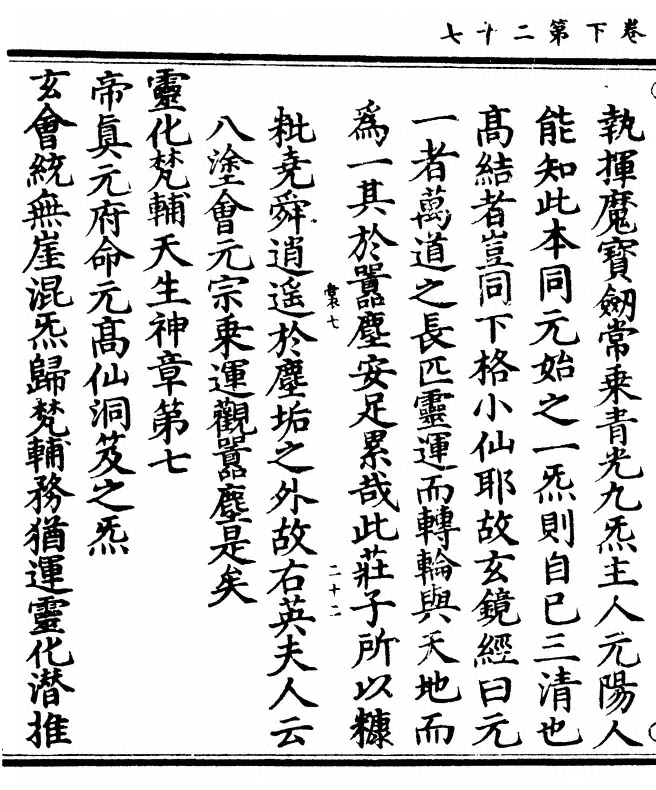 卷下第二十七
執揮魔寶劒常乗青光九炁主人元陽人
能知此本同元始之一炁則自已三清也
髙結者豈同下格小仙耶故玄鏡經曰元
一者萬道之長匹靈運而轉輪與天地而
爲一其於囂塵安足累哉此莊子所以糠
裳七
二十二
粃堯舜逍遥於塵垢之外故右英夫人云
八塗會元宗乗運觀囂塵是矣
靈化梵輔天生神章第七
帝眞元府命元髙仙洞笈之炁
玄會統無崖混炁歸梵輔務猶運靈化潜推